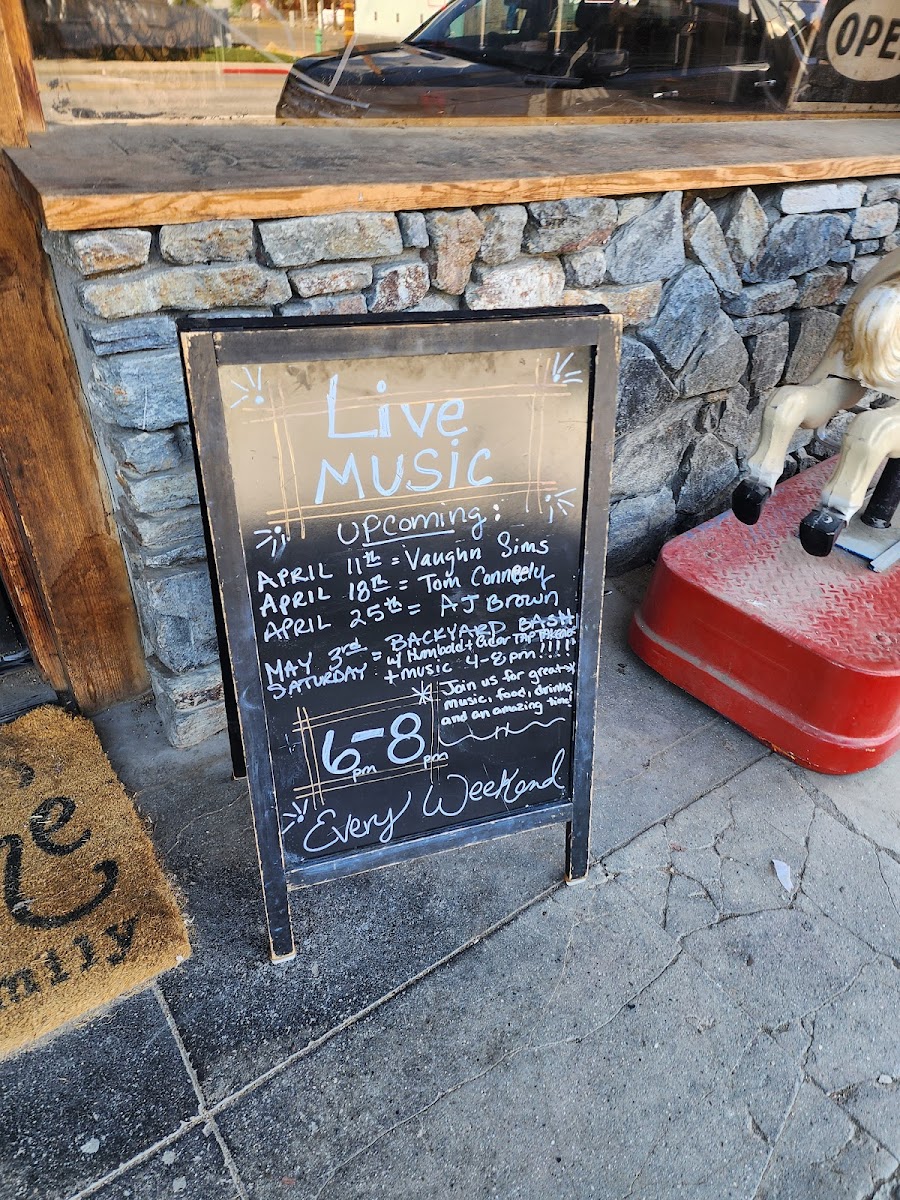 OPE
Live
MUSIC
UPComing:
APRIL 11th = Vaughn Sims
APRIL 18th = Tom Conneely
APRIL 25th = AJ Brown
MAY 3rd = BACKYARD BASH
SATURDAY w/ Humbold + Cider Tap
+ music 4-8pm!!!!
Join us for great
music, food, drinks
and an amazing time!
6pm-8pm
Every Weekend